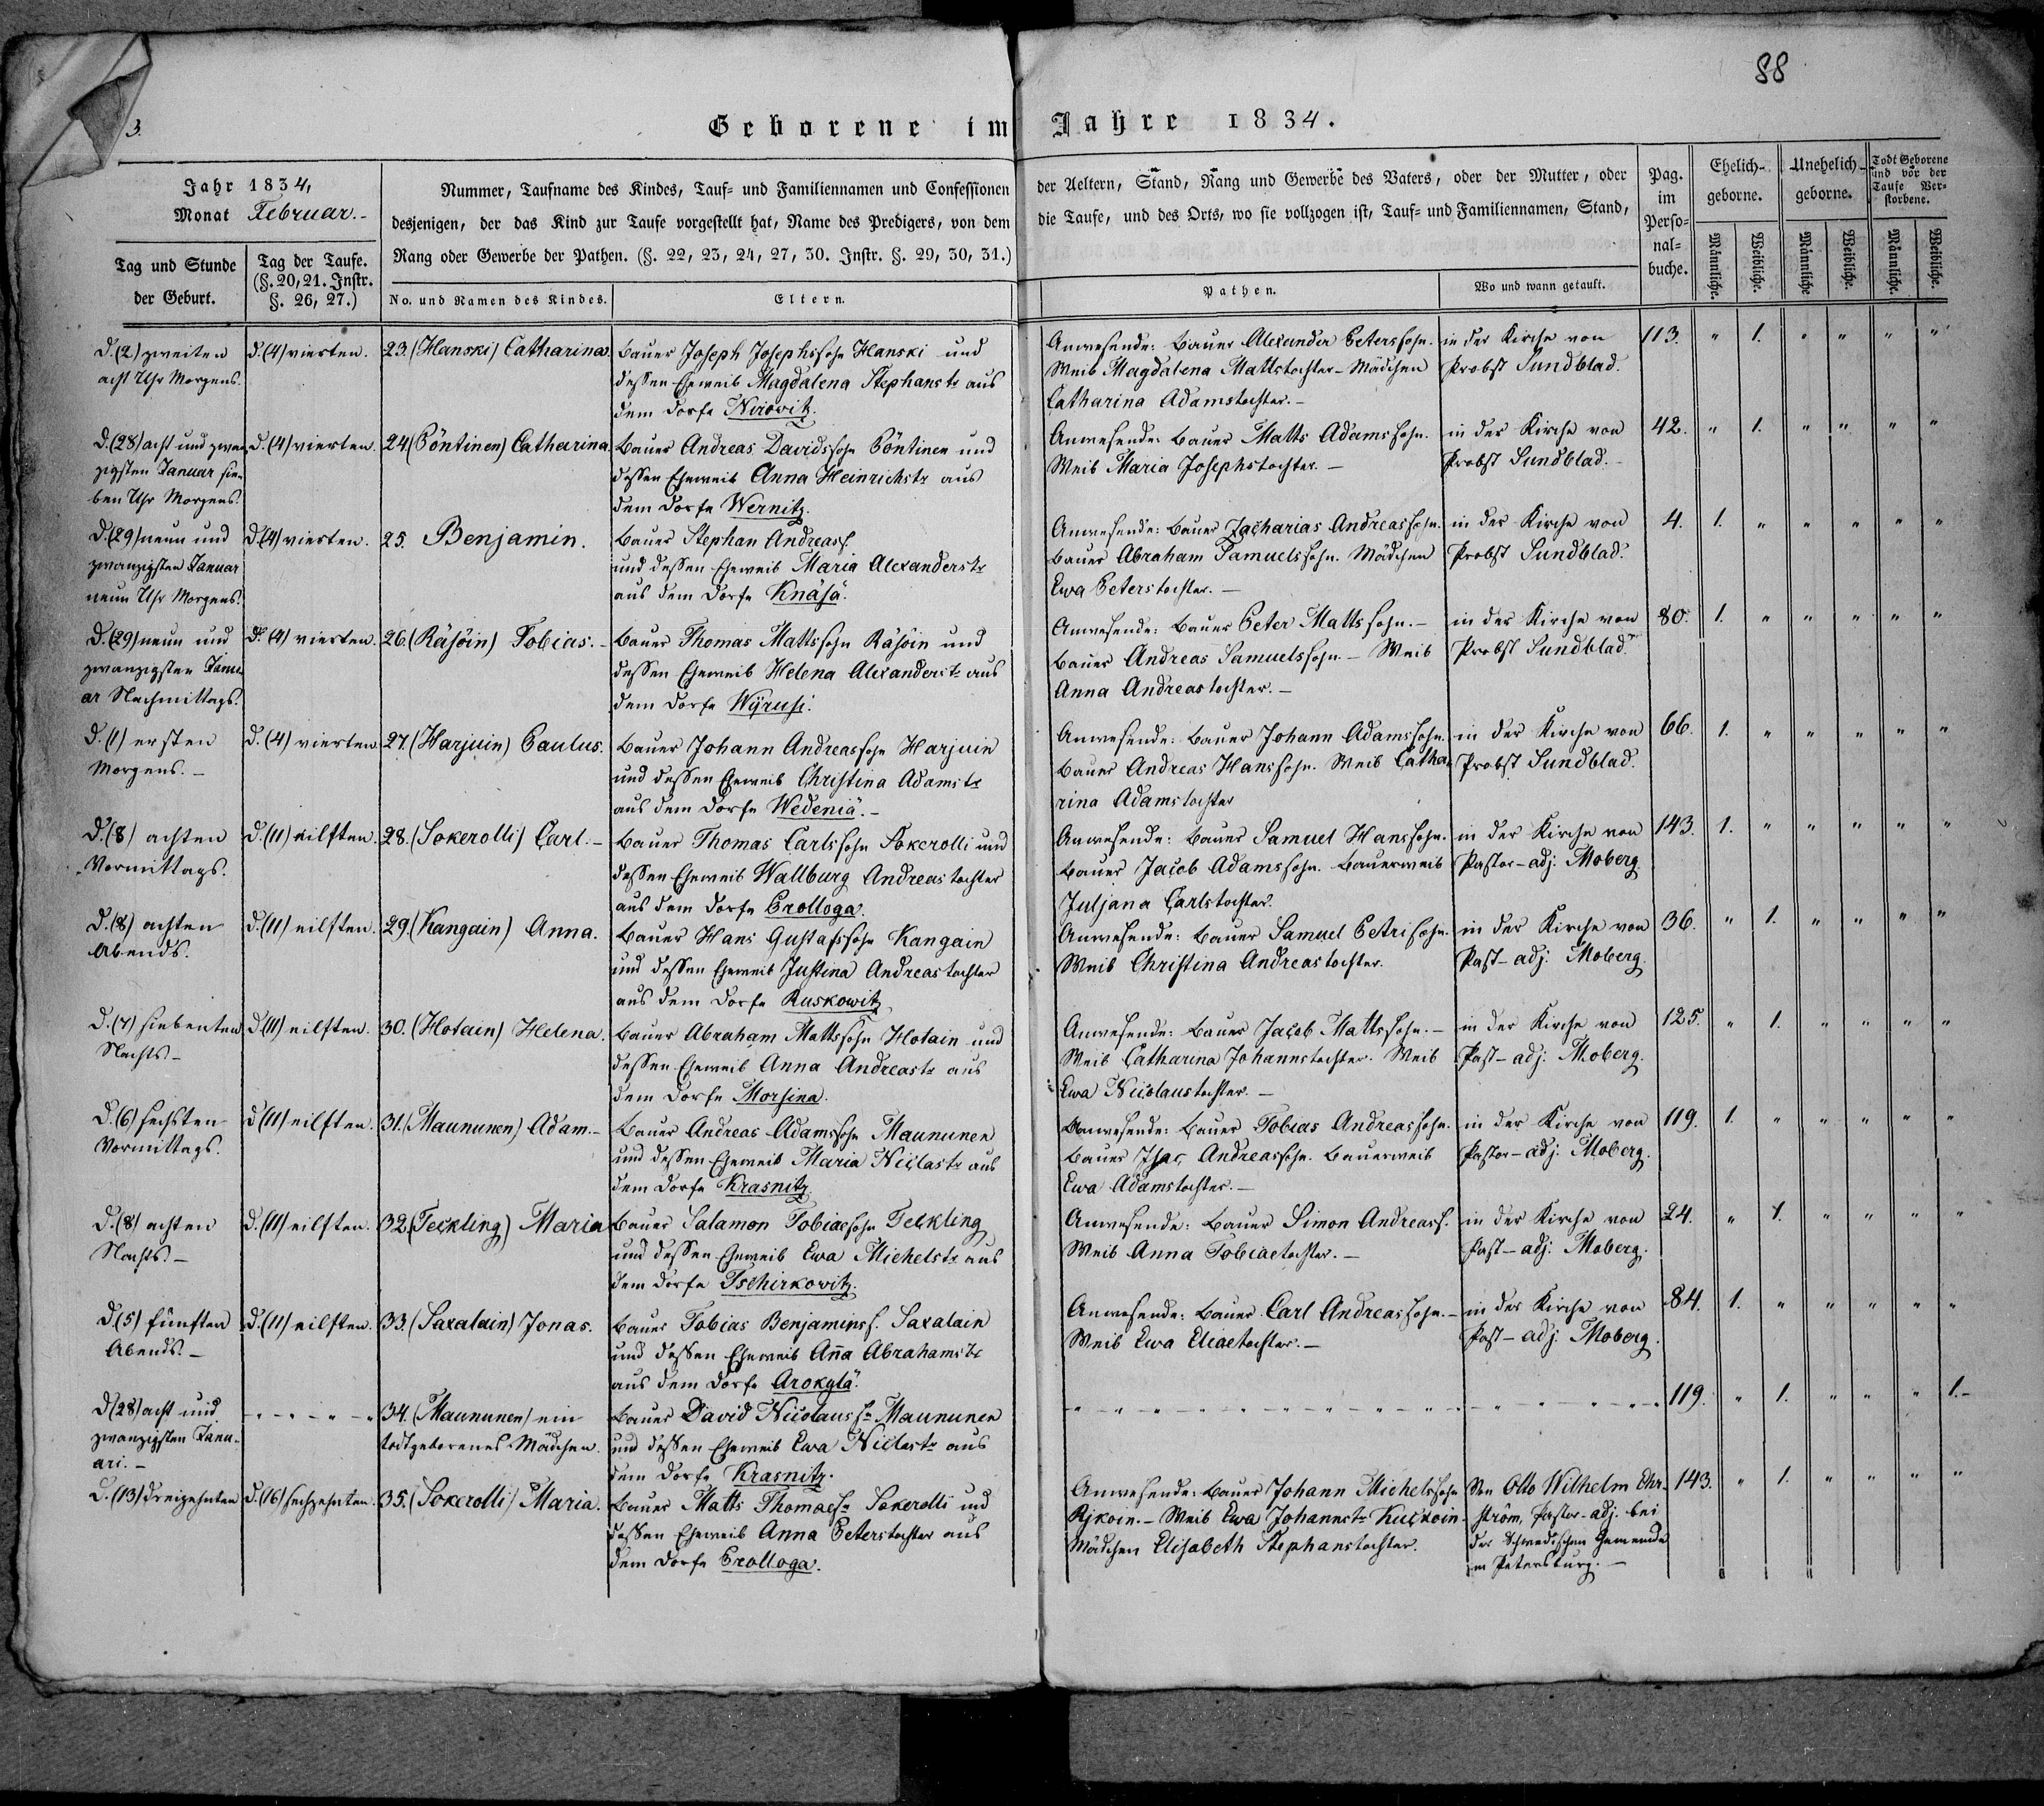 88
3.
Geborene im Jahre 1834.
Jahr 1834,
Monat Februar.-
Tag und Stunde
der Geburt.
Tag der Taufe.
(§. 20, 21. Instr.
§. 26, 27.)
Nummer, Taufname des Kindes, Tauf- und Familiennamen und Confessionen
desjenigen, der das Kind zur Taufe vorgestellt hat, Name des Predigers, von dem
Rang oder Gewerbe der Pathen. (§. 22, 23, 24, 27, 30. Instr. §. 29, 30, 31.)
No. und Namen des Kindes.
Eltern.
der Aeltern, Stand, Rang und Gewerbe des Vaters, oder der Mutter, oder
die Taufe, und des Orts, wo sie vollzogen ist, Tauf- und Familiennamen, Stand,
Pathen.
Wo und wann getauft.
Pag.
im
Perso-
nal-
buche.
Ehelich-
geborne.
Unehelich-
geborne.
Todt Geborene
und vor der
Taufe Ver-
storbene.
Männliche.
Weibliche.
Männliche
Weibliche.
Männliche.
Weibliche.
d. (2) zweiten
acht Uhr Morgens.
d. (4) vierten.
23. (Hanski) Catharina.
Bauer Joseph Josephssohn Hanski und
dessen Eheweib Magdalena Stephanstr aus
dem Dorfe Nirowitz.
Anwesende: Bauer Alexander Peterssohn.
Weib Magdalena Mattstochter - Mädchen
Catharina Adamstochter. -
in der Kirche von
Probst Sundblad.
113. " 1. " " " "
d. (28) acht und zwan
zigsten Januar sie-
ben Uhr Morgens.
d. (4) vierten.
24. (Pöntinen) Catharina.
Bauer Andreas Davidssohn Pöntinen und
dessen Eheweib Anna Heinrichstr aus
dem Dorfe Wernitz.
Anwesende: Bauer Matts Adamssohn.
Weib Maria Josephstochter. -
in der Kirche von
Probst Sundblad. -
42. " 1. " " " "
d. (29) neun und
zwanzigsten Januar
neun Uhr Morgens.
d. (4) vierten.
25. Benjamin.
Bauer Stephan Andreass.
und dessen Eheweib Maria Alexanderstr
aus dem Dorfe Knäsä.
Anwesende: Bauer Zacharias Andreassohn.
Bauer Abraham Samuelssohn. Mädchen
Ewa Peterstochter. -
in der Kirche von
Probst Sundblad.
4. 1. " " " " "
d. (29) neun und
zwanzigsten Janu-
ar Nachmittags.
d. (4) vierten.
26. (Räsöin) Tobias. -
Bauer Thomas Mattssohn Räsöin und
dessen Eheweib Helena Alexanderstr aus
dem Dorfe Wÿrusi.
Anwesende: Bauer Peter Mattssohn. -
Bauer Andreas Samuelssohn. - Weib
Anna Andreastochter. -
in der Kirche von
Probst Sundblad.
80. 1. " " " " "
d. (1) ersten
Morgens. -
d. (4) vierten.
27. (Harjuin) Paulus.
Bauer Johann Andreassohn Harjuin
und dessen Eheweib Christina Adamstr
aus dem Dorfe Wedeniä. -
Anwesende: Bauer Johann Adamssohn.
Bauer Andreas Hanssohn. Weib Catha-
rina Adamstochter
in der Kirche von
Probst Sundblad.
66. 1. " " " " "
d. (8) achten
Vormittags.
d. (11) eilften.
28. (Sokerolli) Carl. -
Bauer Thomas Carlssohn Sokerolli und
dessen Eheweib Wallburg Andreastochter
aus dem Dorfe Prolloga.
Anwesende: Bauer Samuel Hanssohn.
Bauer Jacob Adamssohn. Bauerweib
Juljana Carlstochter.
in der Kirche von
Pastor-adj: Moberg.
143. 1. " " " " "
d. (8) achten
Abends.
d. (11) eilften.
29. (Kangain) Anna.
Bauer Hans Gustafssohn Kangain
und dessen Eheweib Justina Andreastochter
aus dem Dorfe Ruskowitz
Anwesende: Bauer Samuel Petrisohn.
Weib Christina Andreastochter.
in der Kirche von
Past-adj: Moberg.
36. " 1. " " " "
d. (7) siebenten
Nachts -
d. (11) eilften.
30. (Hotain) Helena.
Bauer Abraham Mattssohn Hotain und
dessen Eheweib Anna Andreastr aus
dem Dorfe Morsina.
Anwesende: Bauer Jacob Mattssohn. -
Weib Catharina Johannstochter. Weib
Ewa Nicolaustochter. -
in der Kirche von
Past-adj: Moberg.
125. " 1. " " " "
d. (6) sechsten
Vormittags.
d (11) eilften.
31. (Maununen) Adam. -
Bauer Andreas Adamssohn Maununen
und dessen Eheweib Maria Niclastr aus
dem Dorfe Krasnitz
Anwesende: Bauer Tobias Andreassohn.
Bauer Isac Andreassohn. Bauerweib
Ewa Adamstochter. -
in der Kirche von
Pastor-adj: Moberg.
119. 1. " " " " "
d. (8) achten
Nachts. -
d. (11) eilften.
32. (Teckling) Maria
Bauer Salamon Tobiaesohn Teckling
und dessen Eheweib Ewa Michelstr aus
dem Dorfe Tschirkowitz.
Anwesende: Bauer Simon Andreass.
Weib Anna Tobiaetochter. -
in der Kirche von
Past-adj: Moberg.
24. " 1. " " " "
d. (5) fünften
Abends. -
d. (11) eilften.
33. (Saxalain) Jonas.
Bauer Tobias Benjamins s. Saxalain
und dessen Eheweib Anna Abrahamstr
aus dem Dorfe Arokylä.
Anwesende: Bauer Carl Andreassohn. -
Weib Ewa Eliaetochter. -
in der Kirche von
Past-adj: Moberg.
84. 1. " " " " "
d (28) acht und
zwanzigsten Janu-
ari. -
34. (Maununen) ein
todtgeborenes Mädchen.
Bauer David Nicolaus sn Maununen
und dessen Eheweib Ewa Niclastr aus
dem Dorfe Krasnitz.
119. " 1. " " " 1. -
d. (13) dreizehnten
d. (16) sechzehnten.
35. (Sokerolli) Maria.
Bauer Matts Thomaesn Sokerolli und
dessen Eheweib Anna Peterstochter aus
dem Dorfe Prolloga.
Anwesende: Bauer Johann Michelssohn
Rjkoin. - Weib Ewa Johannstr Kuckoin -
Mädchen Elisabeth Stephanstochter.
Von Otto Wilhelm Ehr-
ström, Pastor-adj. bei
der Schwedischen Gemeinde
in Petersburg. -
143. " 1. " " " "